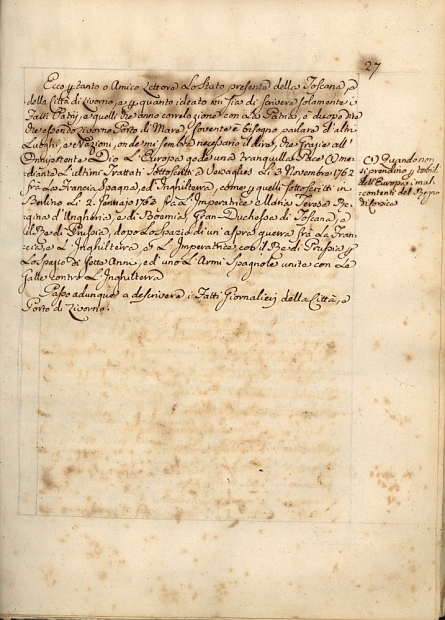 27
Ecco p tanto o Amico Lettore Lo Stato presente della Toscana, e
della Città di Livorno, e p quanto ideato sia di scrivere solamente i
Fatti Patrj, e quelli che anno correlazione con La Patria, è duopo dire
che essendo Livorno Porto di Mare Sovente è bisogno parlare d'altri
Luoghi, e Nazioni, onde mi sembra necessario il dire, che grazie all'
Onnipotente Dio L'Europa gode una tranquilla Pace me-
diante L'ultimi Trattati Sottoscritti a Li 3 Novembre 1762
frà La Francia Spagna, ed Inghilterra, come p quelli sottoscritti in
Berlino Li 2. Gennajo 1763 frà L'Imperatrice Maria Teresa Re-
gina d'Ungheria, e di Boemia, Gran-Duchessa di Toscana, e
il Re di Prussia, dopo Lo spazio di un'aspra guerra frà La Fran-
cia, e L'Inghilterra, e L'Imperatrice col il Re di Prussia p
Lo spazio di Sette Anni, ed uno L'Armi Spagnole unite con Le
Galle contro L'Inghilterra
Passo adunque a descrivere i Fatti Giornalieri della Città, e
Porto di Livorno.
Quando non
si prendino p
dell'Europa i mal-
contenti del Regno
di Corsica